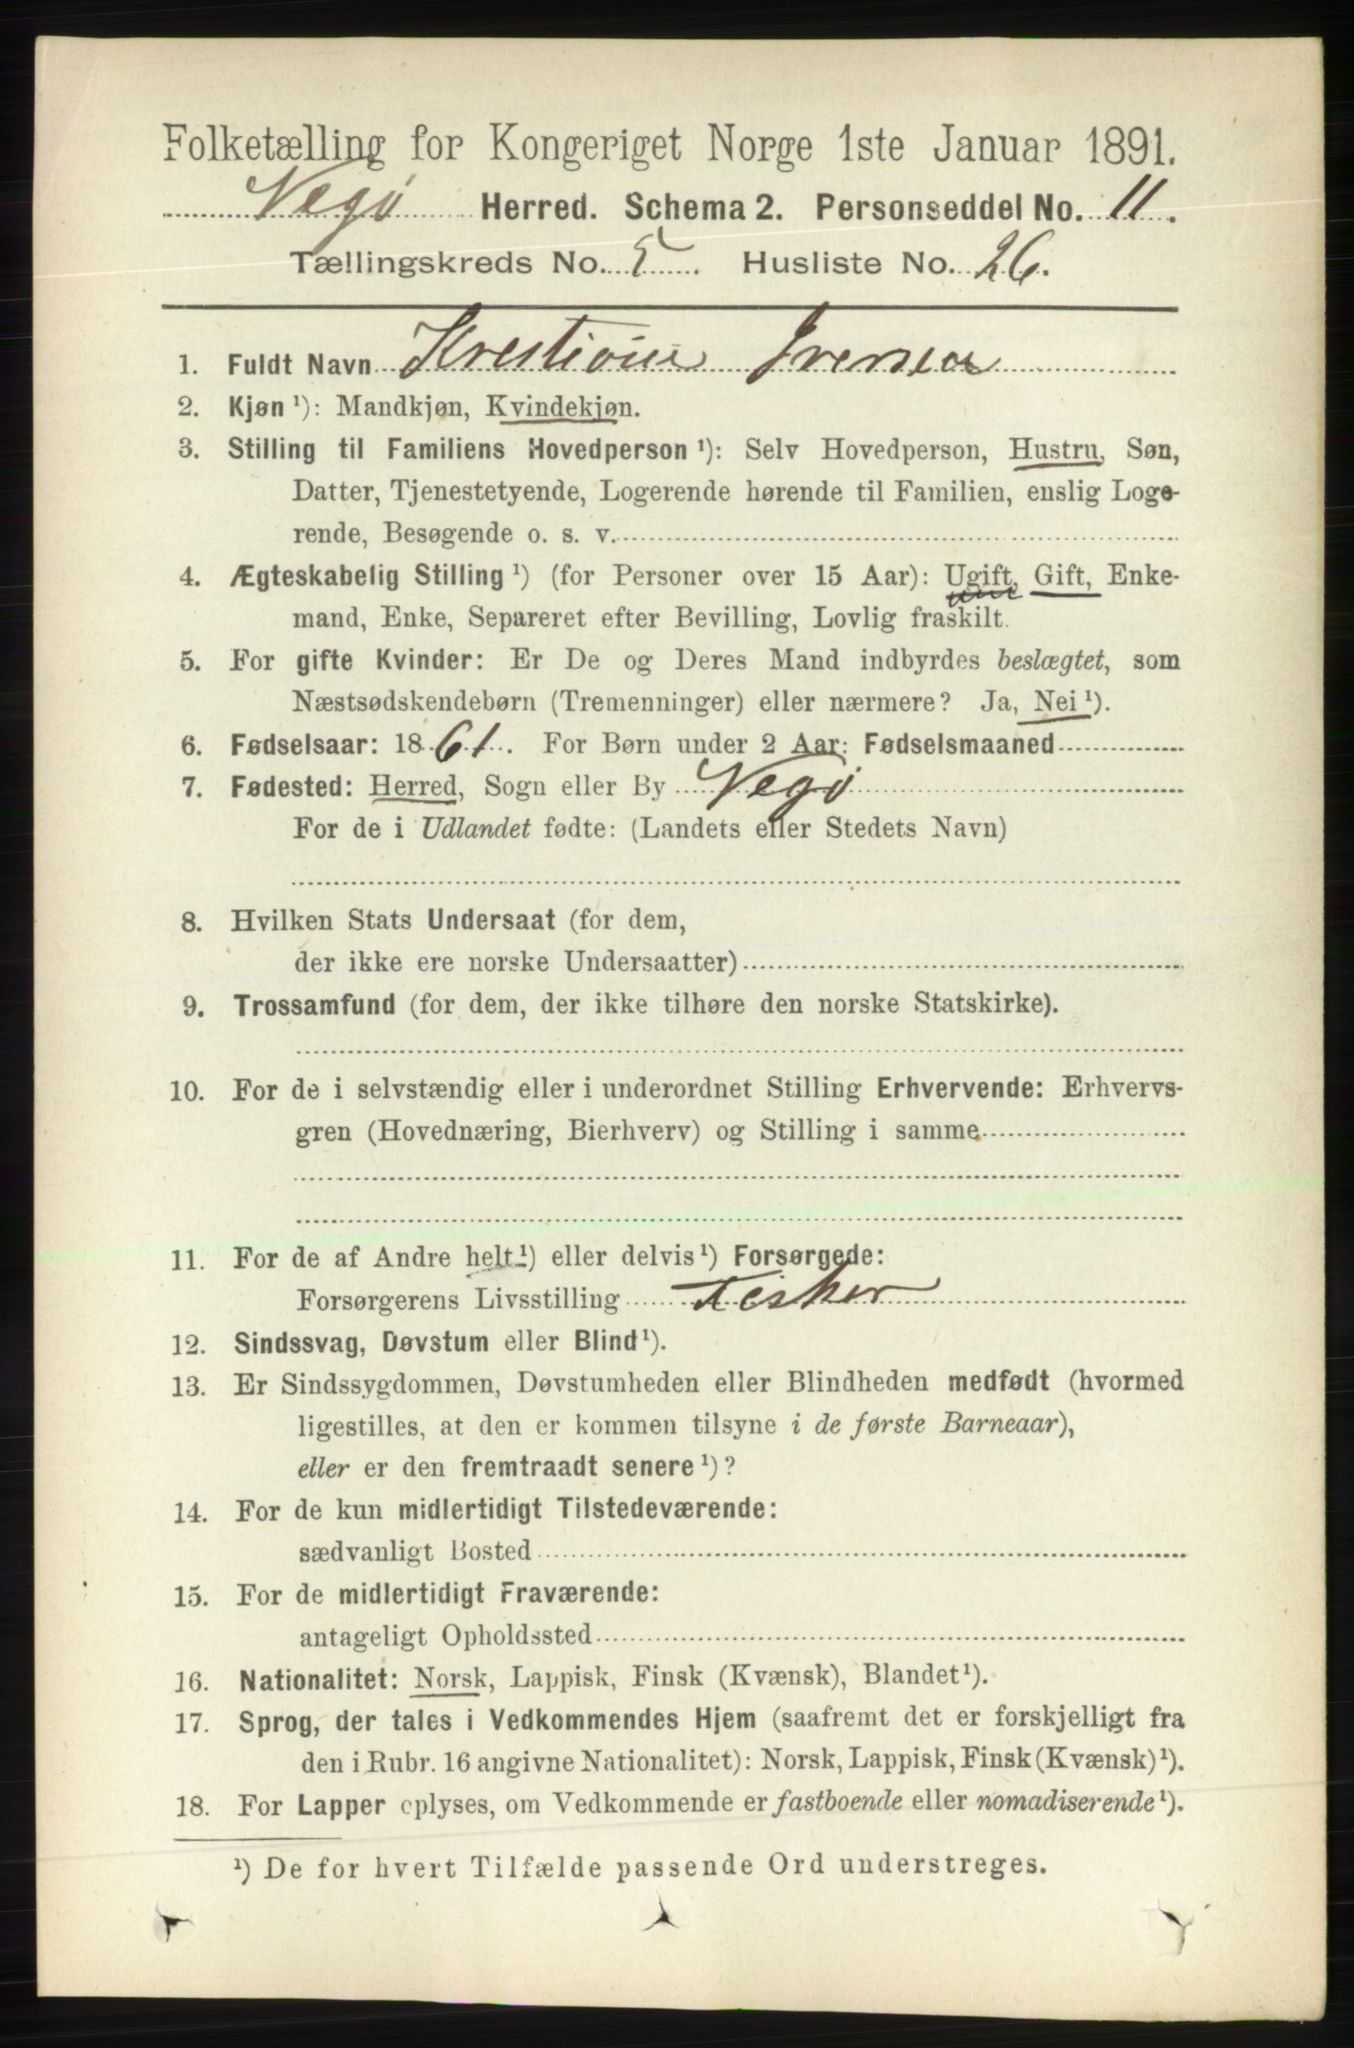 Folketælling for Kongeriget Norge 1ste Januar 1891.
Vegø Herred. Schema 2. Personseddel No. 11.
Tællingskreds No. 5. Husliste No. 26.
1. Fuldt Navn Krestiane Iversen
2. Kjøn ¹): Mandkjøn, Kvindekjøn.
3. Stilling til Familiens Hovedperson ¹): Selv Hovedperson, Hustru, Søn,
Datter, Tjenestetyende, Logerende hørende til Familien, enslig Loge-
rende, Besøgende o. s. v.
4. Ægteskabelig Stilling ¹) (for Personer over 15 Aar): Ugift, Gift, Enke-
mand, Enke, Separeret efter Bevilling, Lovlig fraskilt.
5. For gifte Kvinder: Er De og Deres Mand indbyrdes beslægtet, som
Næstsødskendebørn (Tremenninger) eller nærmere? Ja, Nei ¹).
6. Fødselsaar: 1861. For Børn under 2 Aar: Fødselsmaaned
7. Fødested: Herred, Sogn eller By Vegø
For de i Udlandet fødte: (Landets eller Stedets Navn)
8. Hvilken Stats Undersaat (for dem,
der ikke ere norske Undersaatter)
9. Trossamfund (for dem, der ikke tilhøre den norske Statskirke).
10. For de i selvstændig eller i underordnet Stilling Erhvervende: Erhvervs-
gren (Hovednæring, Bierhverv) og Stilling i samme
11. For de af Andre helt ¹) eller delvis ¹) Forsørgede:
Forsørgerens Livsstilling Fisker
12. Sindssvag, Døvstum eller Blind ¹).
13. Er Sindssygdommen, Døvstumheden eller Blindheden medfødt (hvormed
ligestilles, at den er kommen tilsyne i de første Barneaar),
eller er den fremtraadt senere ¹)?
14. For de kun midlertidigt Tilstedeværende:
sædvanligt Bosted
15. For de midlertidigt Fraværende:
antageligt Opholdssted
16. Nationalitet: Norsk, Lappisk, Finsk (Kvænsk), Blandet ¹).
17. Sprog, der tales i Vedkommendes Hjem (saafremt det er forskjelligt fra
den i Rubr. 16 angivne Nationalitet): Norsk, Lappisk, Finsk (Kvænsk) ¹).
18. For Lapper oplyses, om Vedkommende er fastboende eller nomadiserende ¹).
¹) De for hvert Tilfælde passende Ord understreges.